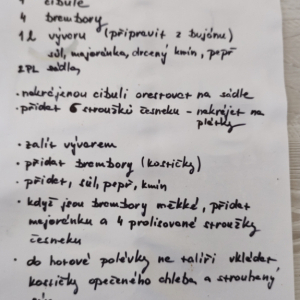 cibule
4 brambory
1l vývaru (připravit z bujónu)
sůl, majoránka, drcený kmín, pepř
2PL sádla
• nakrájenou cibuli orestovat na sádle
• přidat 6 stroužků česneku - nakrájet na
plátky
• zalít vývarem
• přidat brambory (kostičky)
• přidat, sůl, pepř, kmín
• když jsou brambory měkké, přidat
majoránku a 4 prolisované stroužky
česneku
• do hotové polévky na talíři vkládat
kostičky opečeného chleba a strouhaný